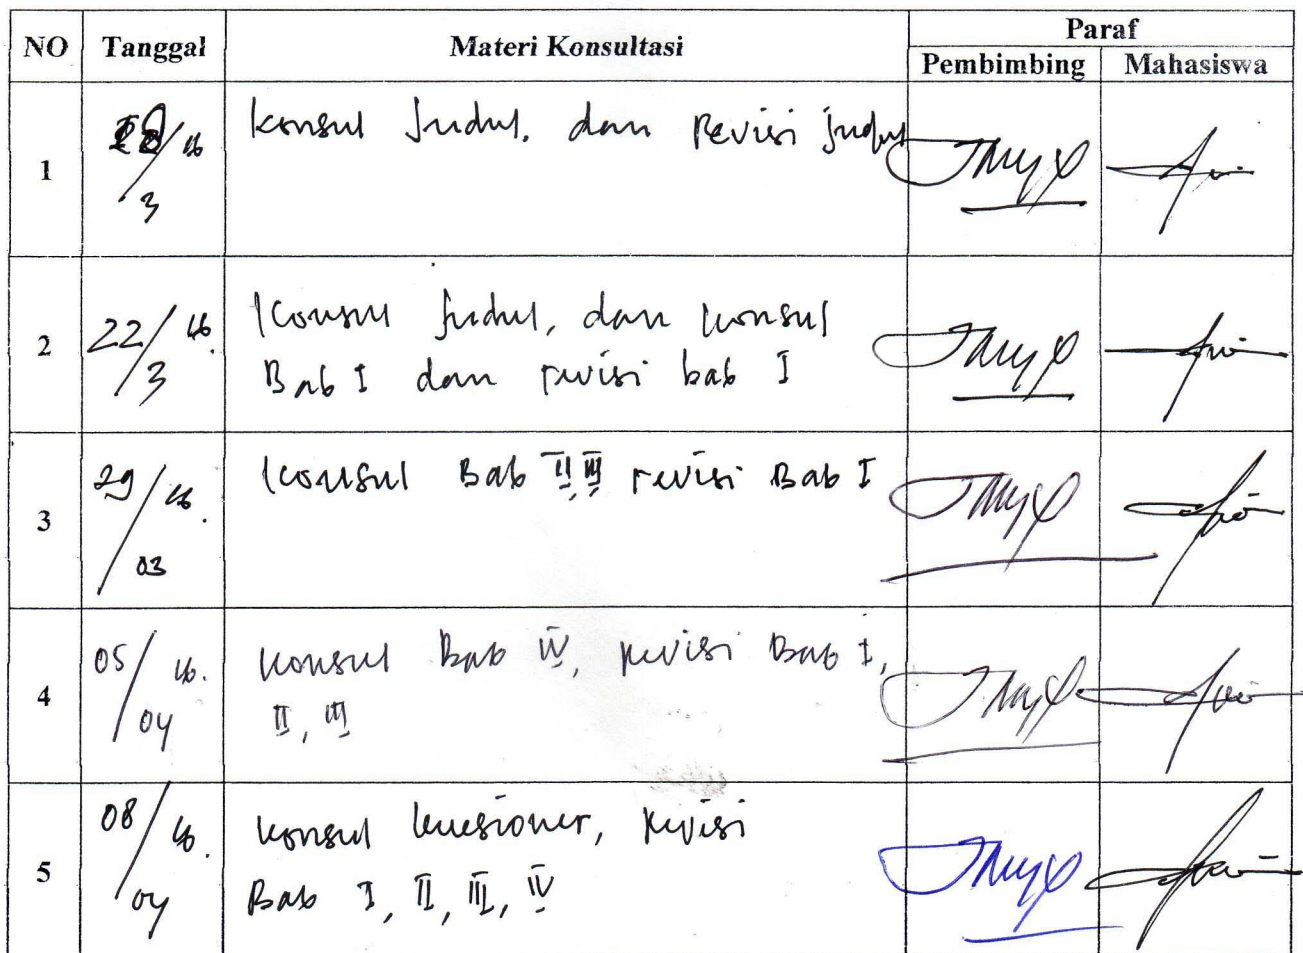 NO Tanggal Materi Konsultasi Paraf
Pembimbing Mahasiswa
1 /16 3 konsul Judul, dan Revisi judul
2 22/16. 3 Konsul Judul, dan konsul
Bab I dan revisi bab I
3 29/16. 03 Konsul Bab II, III revisi Bab I
4 05/16. 04 konsul Bab IV, Revisi Bab I,
II, III
5 08/16. 04 konsul kuesioner, Revisi
Bab I, II, III, IV